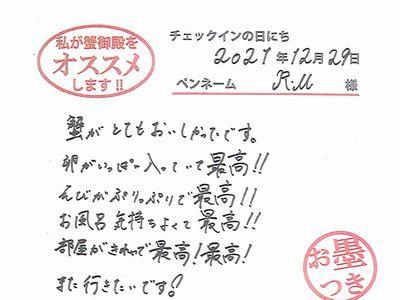 私が蟹御殿を
オススメ
します!!
チェックインの日にち
2021年12月29日
ペンネーム R.M 様
蟹がとてもおいしかったです。
卵がいっぱい入っていて最高!!
えびがぷりっぷりで最高!!
お風呂気持ちよくて最高!!
部屋がきれいで最高!最高!
また行きたいです。
お墨
つき